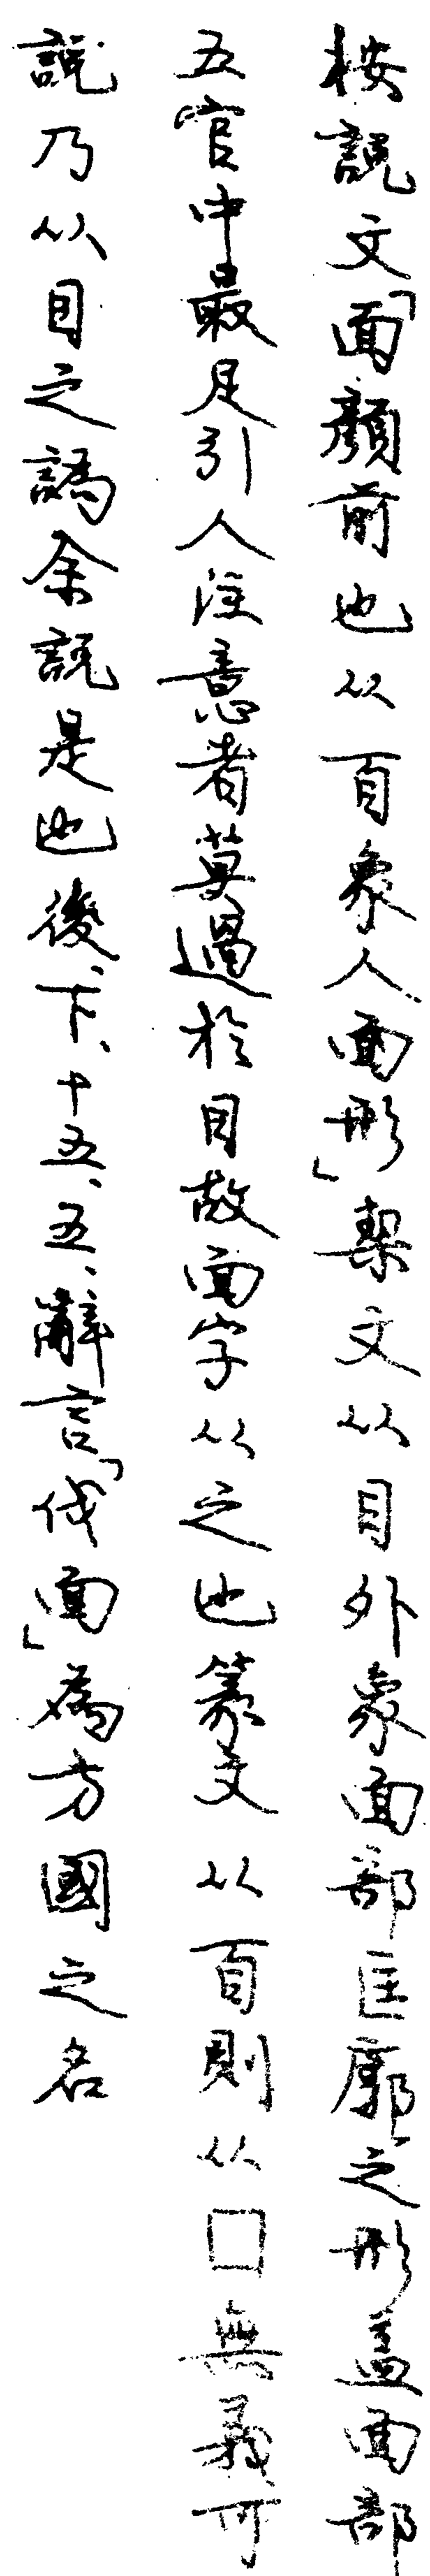 按說文「面顏前也从𦣻象人面形」栔文从目外象面部匡廓之形蓋面部
五官中最足引人注意者莫過於目故面字从之也篆文从𦣻則从囗無義可
說乃从目之譌余說是也後、下、十五、五、辭言「伐面」為方國之名